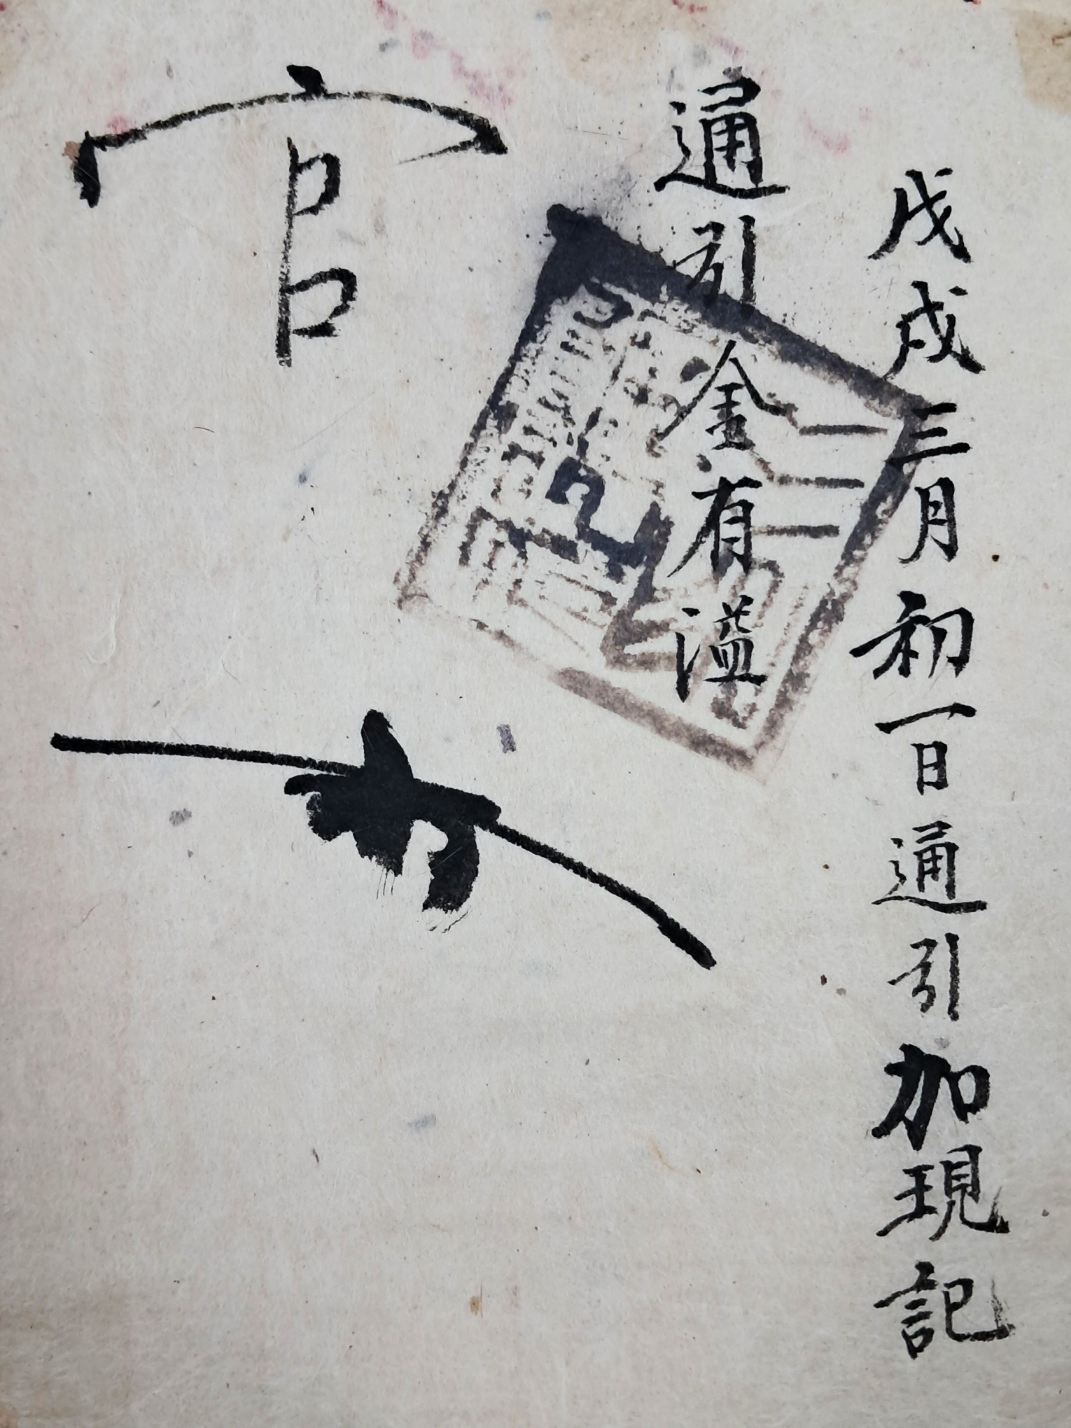 戊戌三月初一日通引加現記
通引金有溢
官